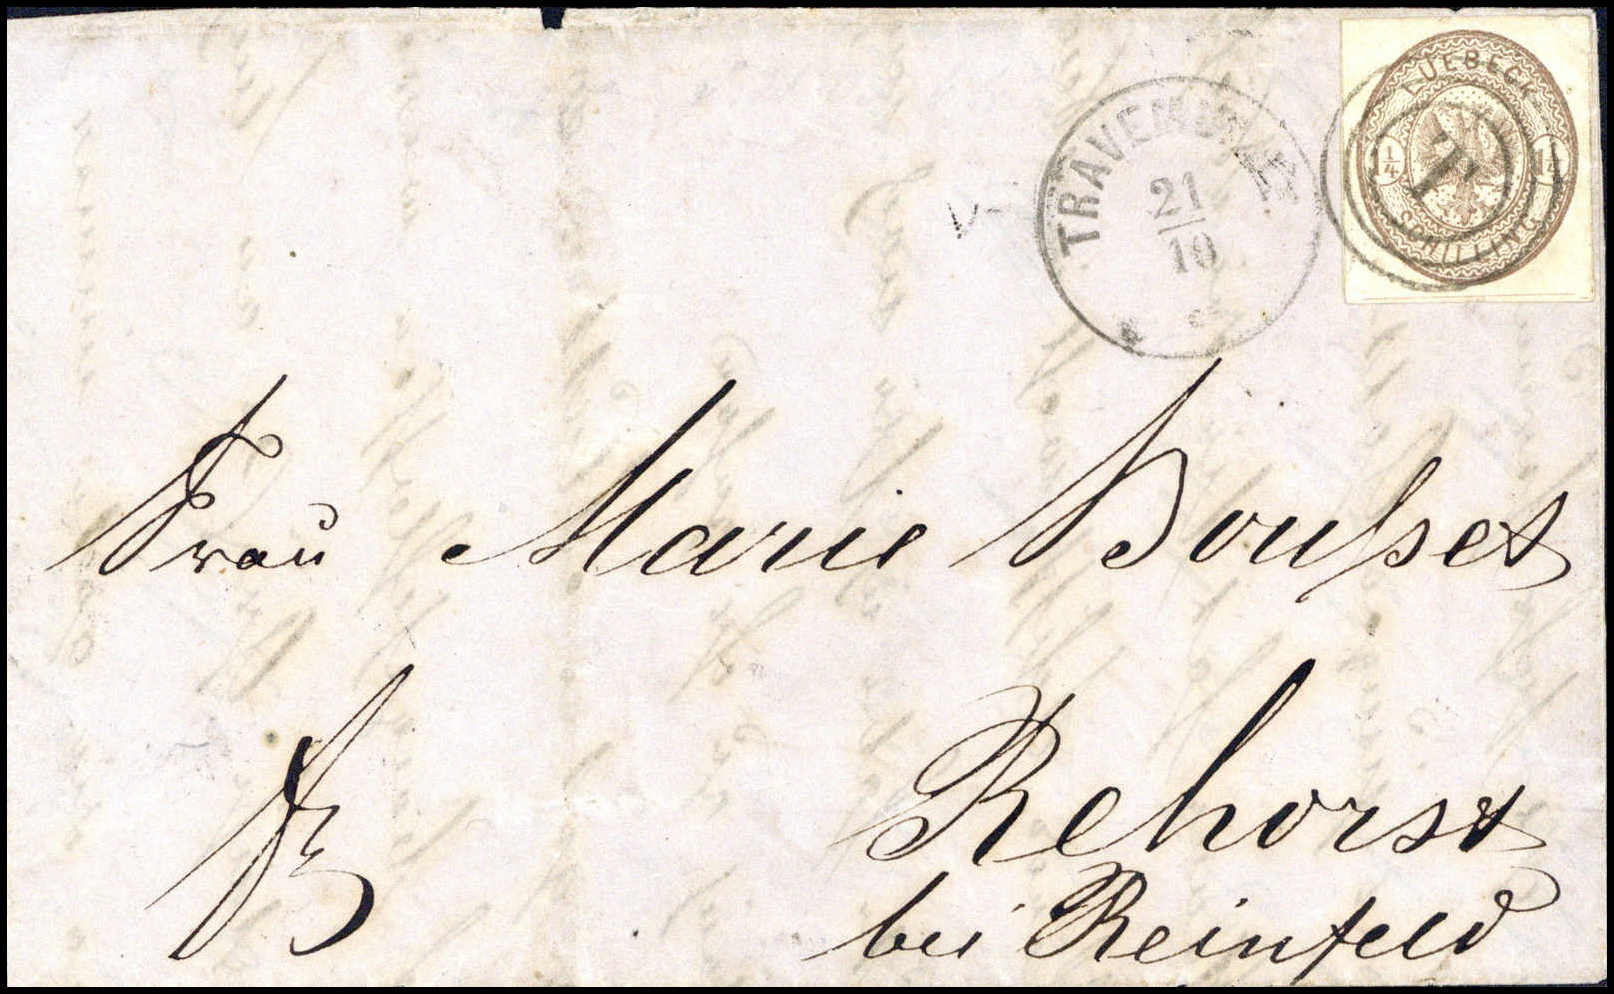 LUEBECK
1/4 1/4
SCHILLING
TRAVEMÜNDE
21
10
Frau Marie Bousset
Rehorst
bei Reinfeld